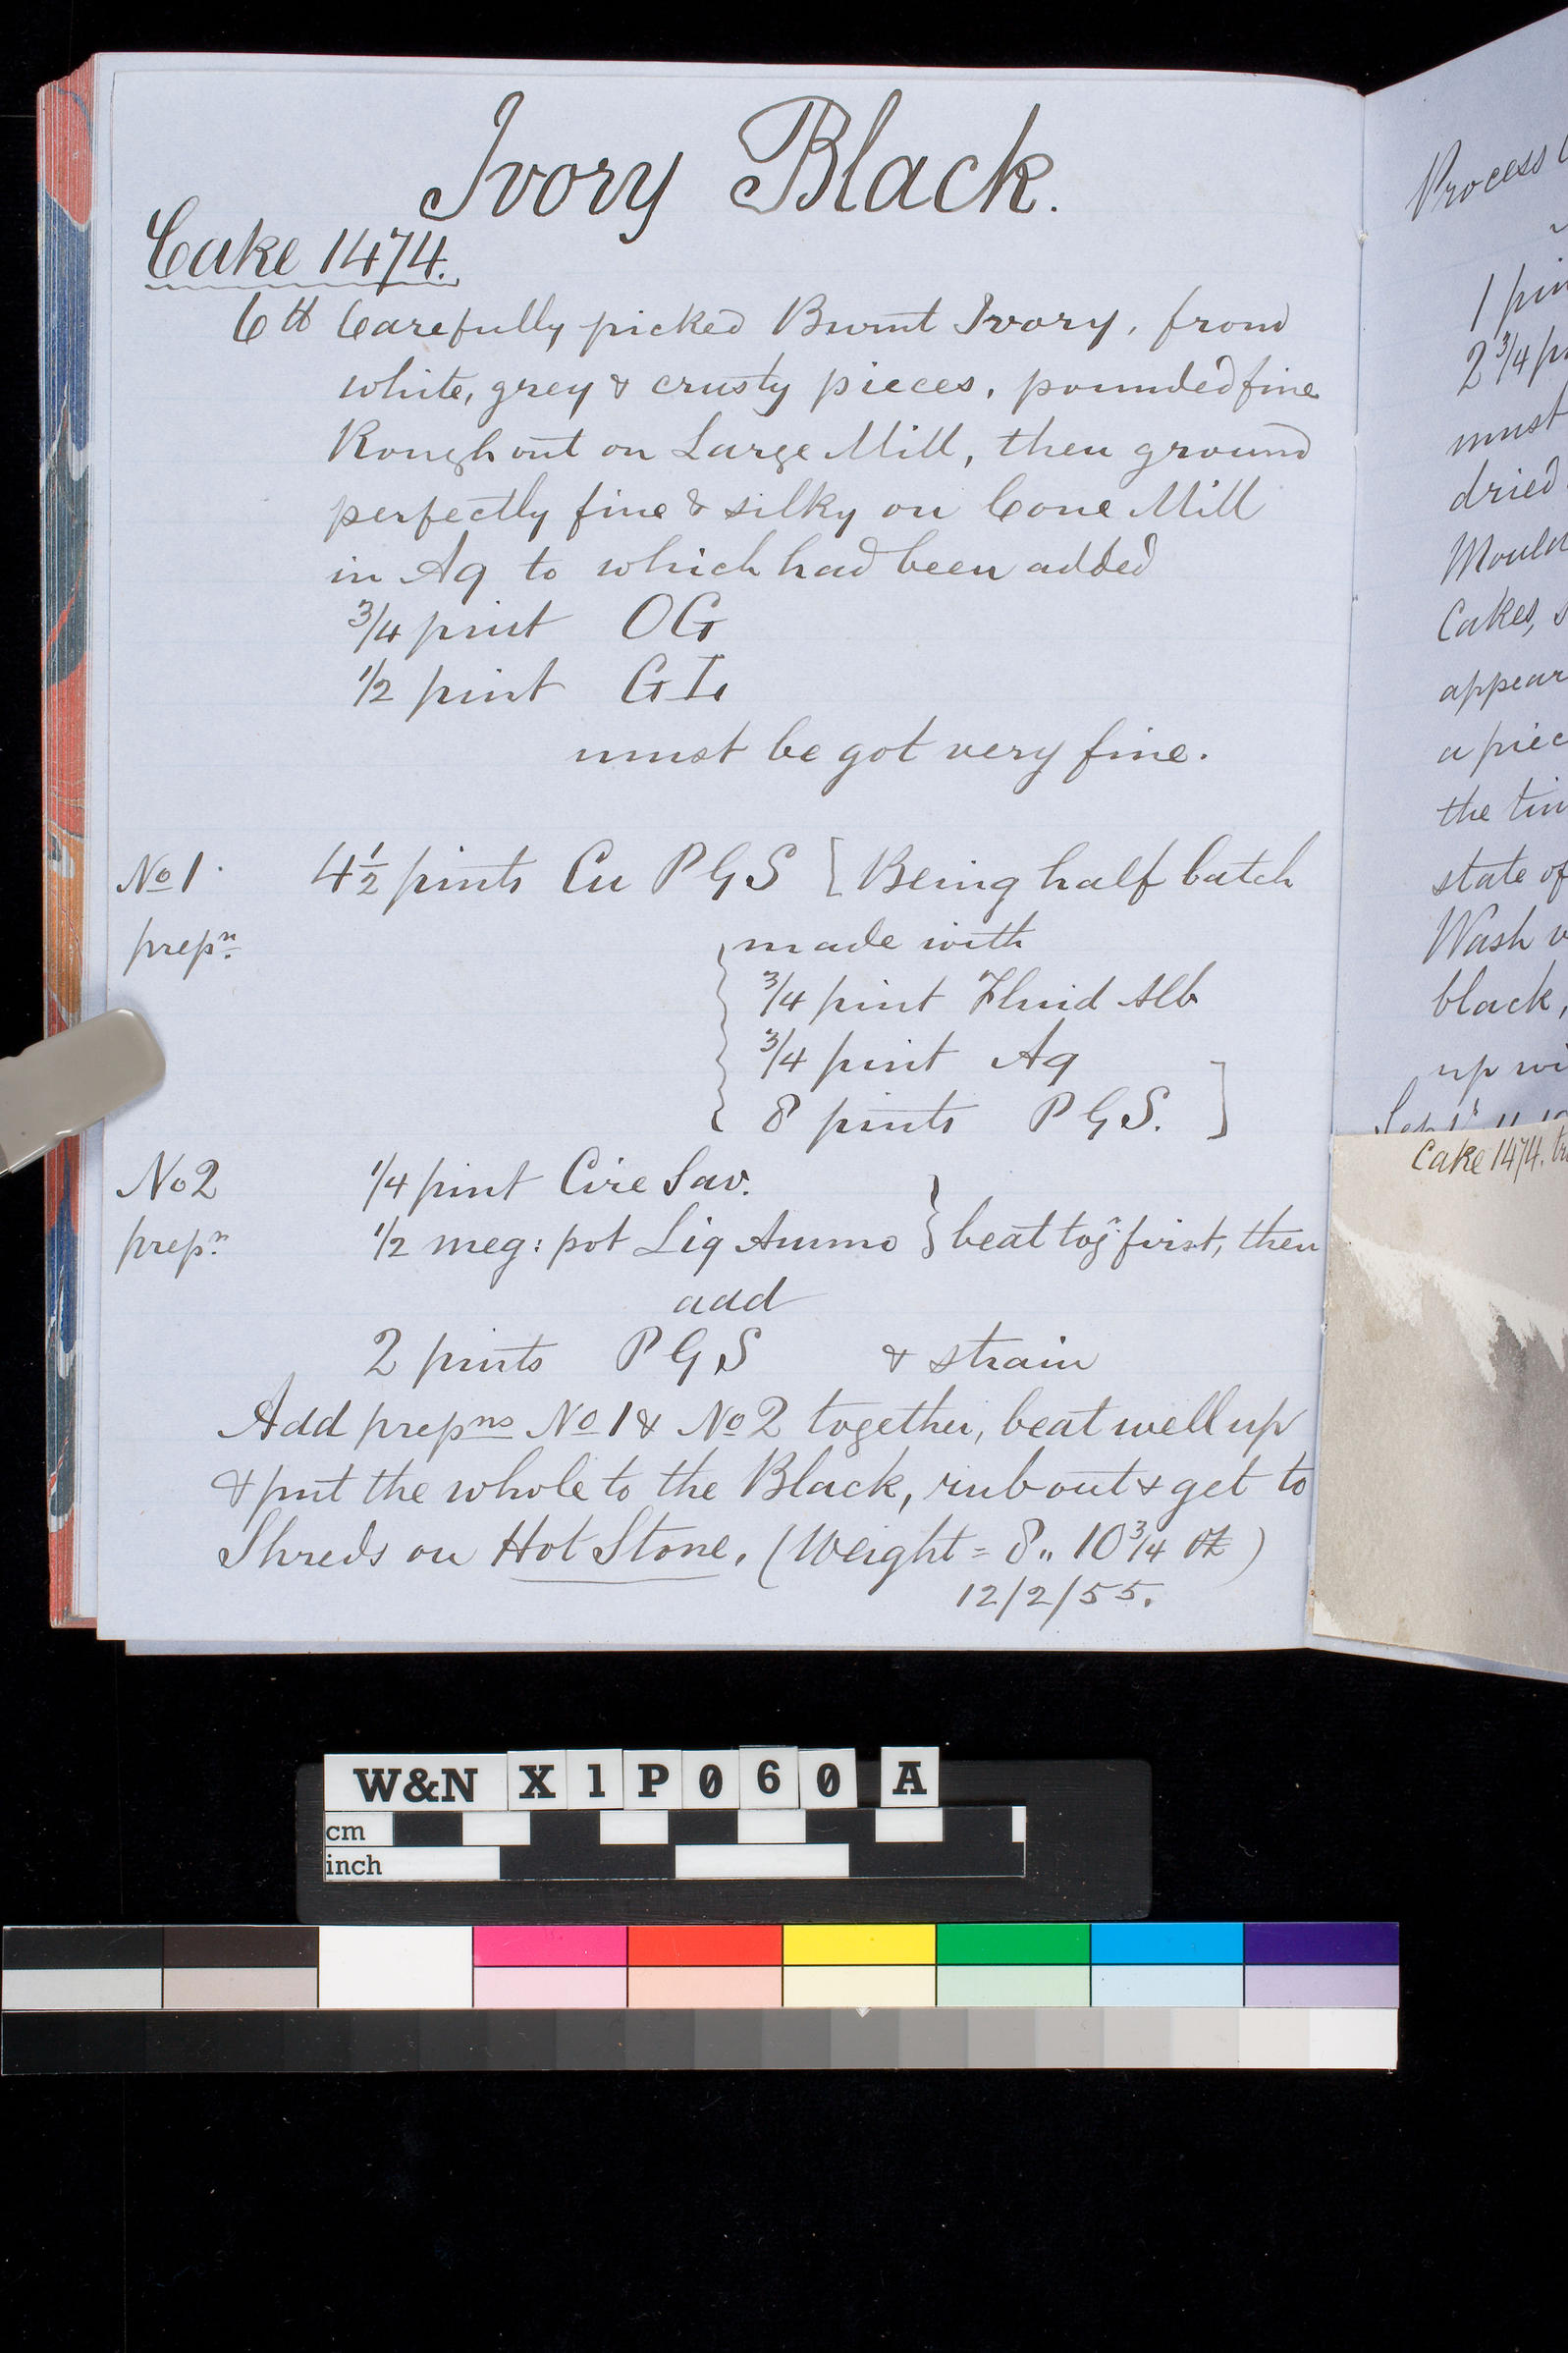 Ivory Black.
Cake 1474.
6 lb Carefully picked Burnt Ivory, from
white, grey & crusty pieces, pounded fine
Rough out on Large Mill, then ground
perfectly fine & silky on Cone Mill
in Aq to which had been added
3/4 pint OG
1/2 pint GI
must be got very fine.
No 1. 4 1/2 pints Cu PGS [Being half batch
prepn. made with
3/4 pint Fluid Alb
3/4 pint Aq
8 pints PGS. ]
No 2 1/4 pint Cire Sav.
prepn. 1/2 meg: pot Liq Ammo } beat togr first, then
add
2 pints PGS & strain
Add prepns No 1 & No 2 together, beat well up
& put the whole to the Black, rub out & get to
Shreds on Hot Stone. (Weight = 8,, 10 3/4 oz)
12/2/55.
Process
1 pin
2 3/4 p
must
dried
Mould
Cakes, s
appear
a piec
the tin
state of
Wash
black,
up wi
Cake 1474.
W&N X1P060 A
cm
inch